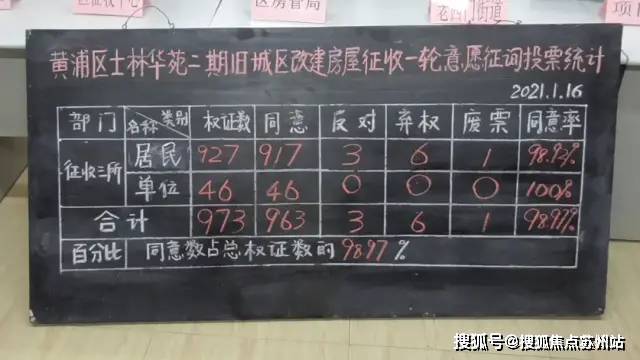 区房管局
老西门街道
黄浦区士林华苑二期旧城区改建房屋征收一轮意愿征询投票统计
2021.1.16
部门 名称 类别 权证数 同意 反对 弃权 废票 同意率
征收三所 居民 927 917 3 6 1 98.92%
单位 46 46 0 0 0 100%
合计 973 963 3 6 1 98.97%
百分比 同意数占总权证数的98.97%
搜狐号@搜狐焦点苏州站